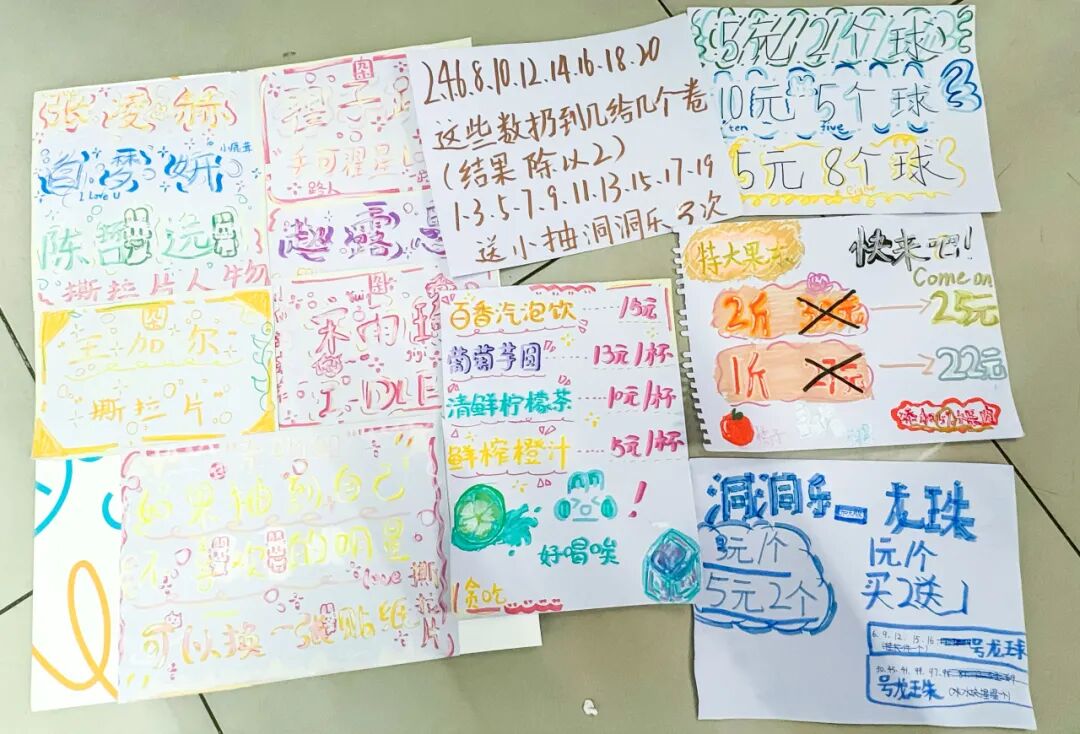 张凌赫
白梦妍
小鹿茸
I love U
陈哲远
撕拉片人物
王加尔
撕拉片
路人
赵露思
宋雨琦
I-DLE
如果抽到自己
不喜欢的明星
可以换一张贴纸
love 撕拉片
2.4.6.8.10.12.14.16.18.20
这些数扔到几给几个卷
(结果除以2)
1.3.5.7.9.11.13.15.17.19
送小抽洞洞乐号次
5元2个球
10元5个球
ten five
5元8个球
特大果冻
快来吧!
Come on
2斤 25元
1斤 22元
百香汽泡饮 15元
葡萄芋圆 13元/杯
清鲜柠檬茶 10元/杯
鲜榨橙汁 5元/杯
!
好喝唉
贪吃
洞洞乐 龙珠
3元/个
5元2个
1元/个
买2送1
6.9.12.15.16
号龙珠
号龙珠